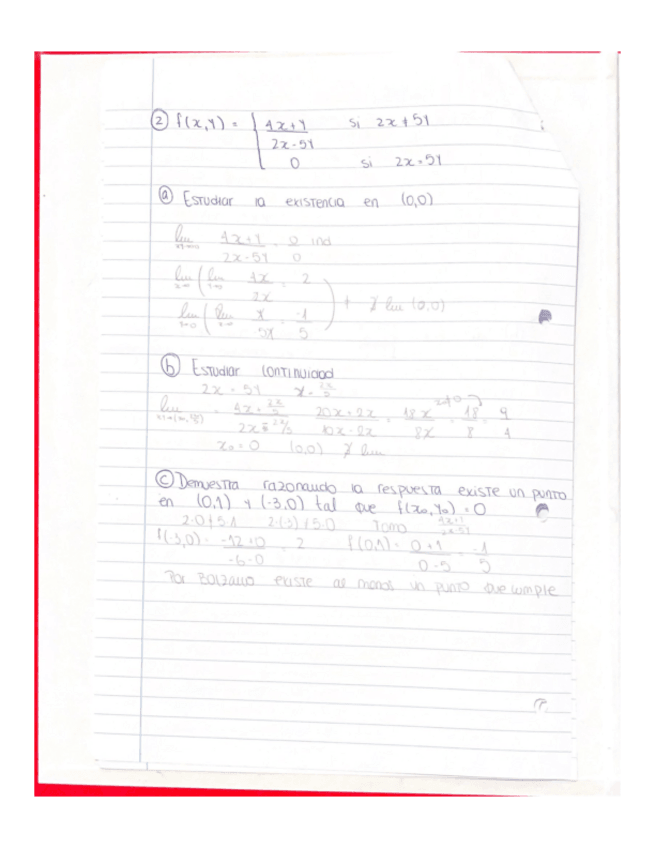 ② f(x,y) = { 4x+y / 2x-5y si 2x≠5y
0 si 2x=5y
ⓐ Estudiar la existencia en (0,0)
lim 4x+y / 2x-5y = 0/0 ind
lim (lim 4x / 2x = 2
lim (lim y / -5y = -1/5) ≠ ∄ lim (0,0)
ⓑ Estudiar continuidad
2x = 5y y = 2x/5
lim = 4x + 2x/5 / 2x 5 = 20x+2x / 10x-2x = 18x / 8x = 18/8 = 9/4
x₀=0 (0,0) ∄ lim
ⓒ Demuestra razonando la respuesta existe un punto
en (0,1) y (-3,0) tal que f(x₀,y₀)=0
2·0≠5·1 2·(-3)≠5·0 Tomo 4x+y / 2x-5y
f(-3,0) = -12+0 / -6-0 = 2 f(0,1) = 0+1 / 0-5 = -1/5
Por Bolzano existe al menos un punto que cumple